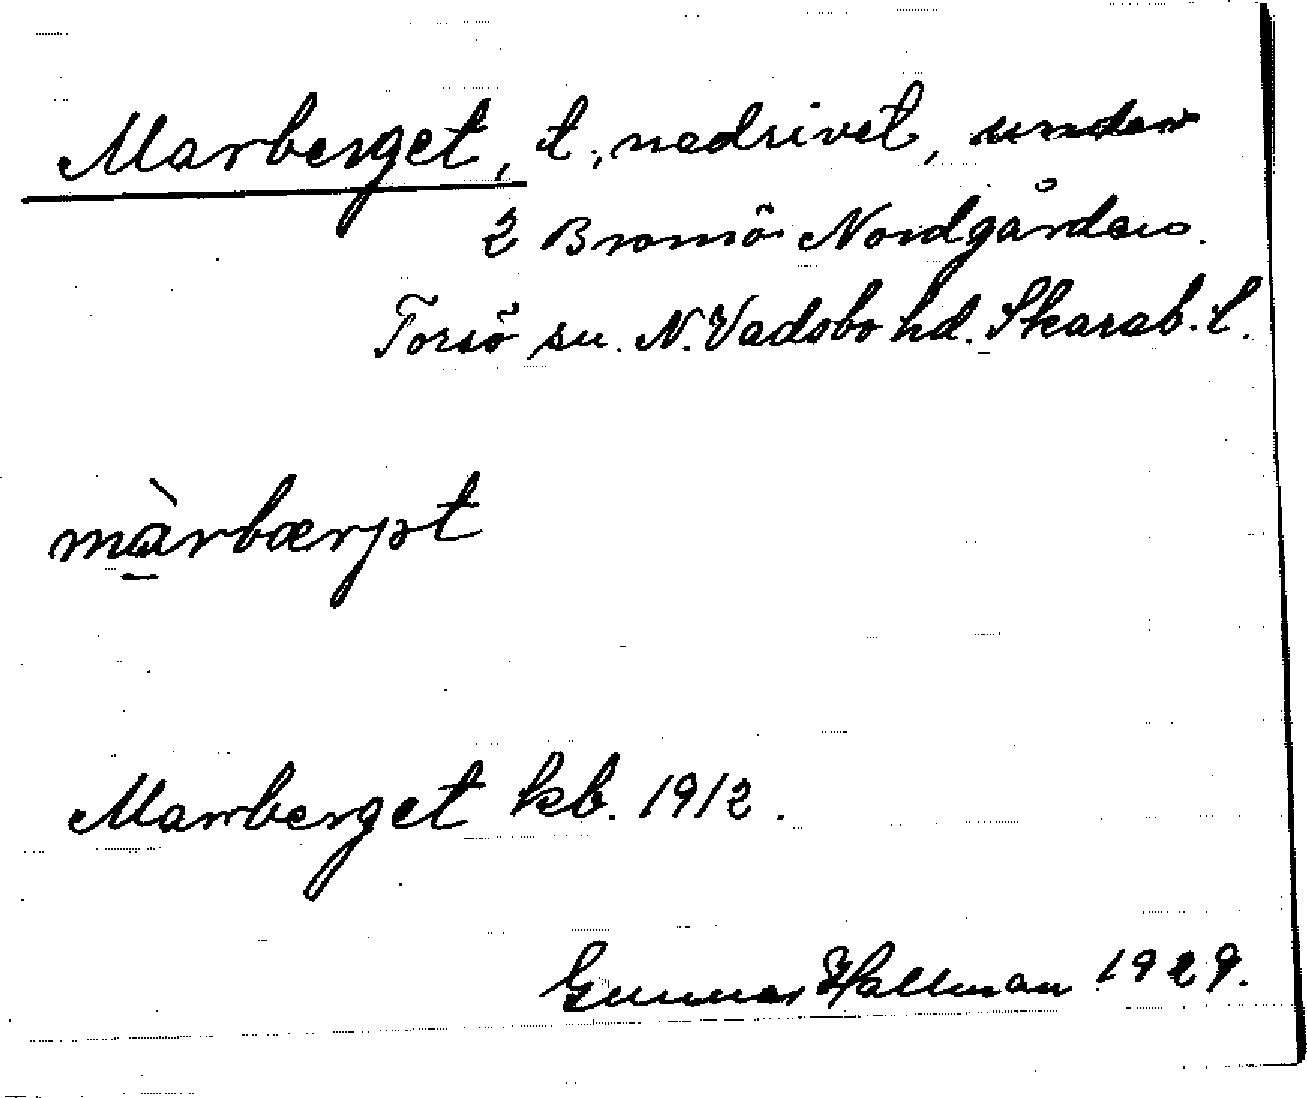 Marberget, t., nedrivet, under
2 Bromö Nordgården.
Torsö sn. N. Vadsbo hd. Skarab. l.
màrbærjət
Marrberget kb. 1912.
Gunnar Hallman 1929.